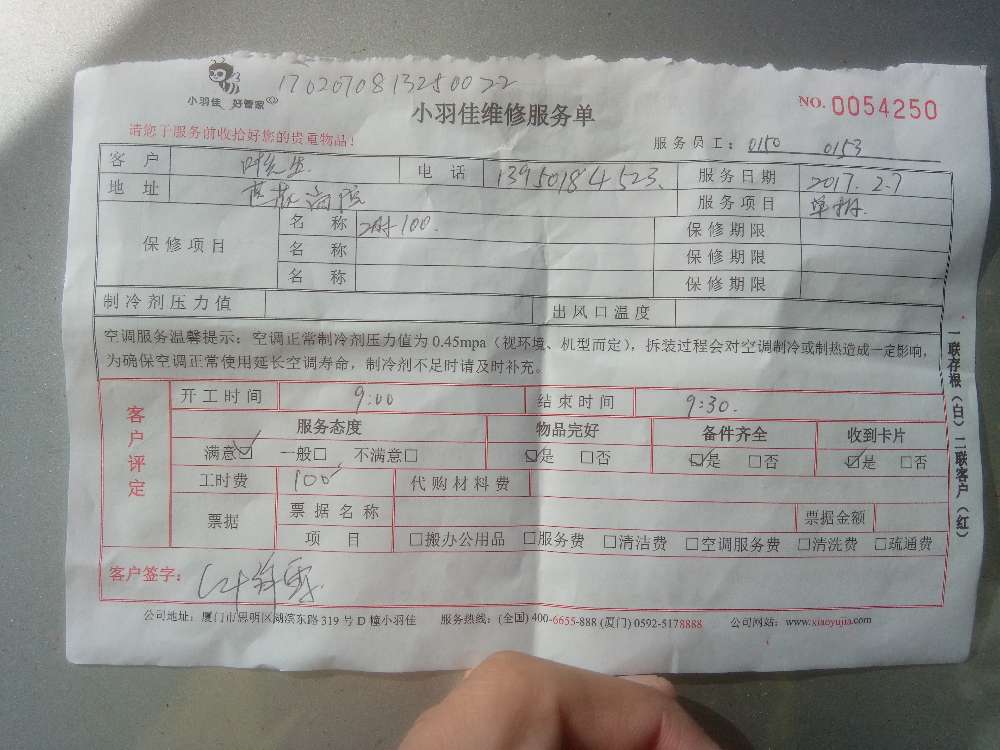 1702070813250022
小羽佳 好管家
小羽佳维修服务单
NO. 0054250
请您于服务前收拾好您的贵重物品!
服务员工: 0150 0153
客户 叶先生 电话 13950184523 服务日期 2017.2.7
地址 服务项目 单拆
保修项目 名称 100 保修期限
名称 保修期限
名称 保修期限
制冷剂压力值 出风口温度
空调服务温馨提示: 空调正常制冷剂压力值为 0.45mpa (视环境、机型而定), 拆装过程会对空调制冷或制热造成一定影响,
为确保空调正常使用延长空调寿命, 制冷剂不足时请及时补充。
客户评定
开工时间 9:00 结束时间 9:30.
服务态度 物品完好 备件齐全 收到卡片
满意☑ 一般□ 不满意□ ☑是 □否 ☑是 □否 ☑是 □否
工时费 100 代购材料费
票据 票据名称 票据金额
项目 □搬办公用品 □服务费 □清洁费 □空调服务费 □清洗费 □疏通费
客户签字:
公司地址: 厦门市思明区湖滨东路 319 号 D 幢小羽佳 服务热线: (全国) 400-6655-888 (厦门) 0592-5178888 公司网站: www.xiaoyujia.com
一联存根(白) 二联客户(红)